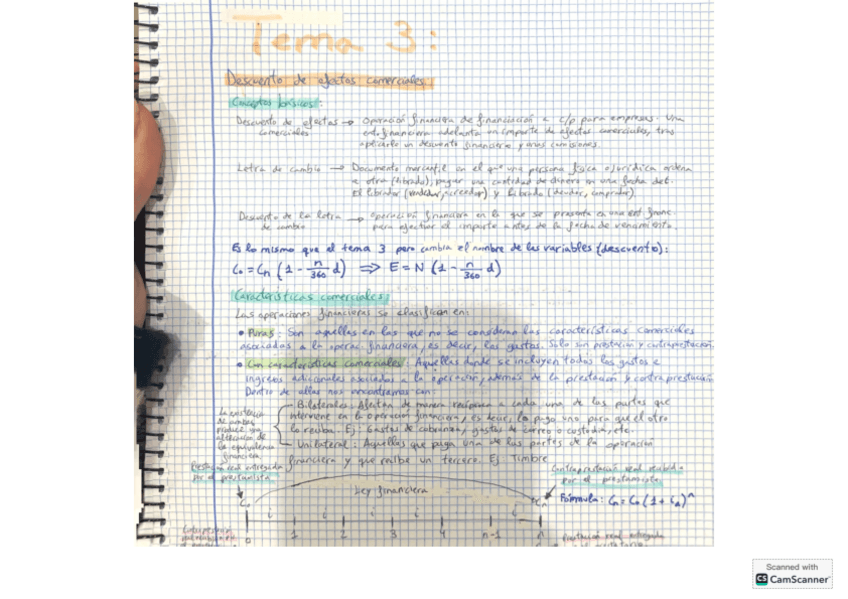 Tema 3:
Descuento de efectos comerciales.
Conceptos básicos:
Descuento de efectos → Operación financiera de financiación a c/p para empresas. Una
comerciales ent. financiera adelanta un importe de efectos comerciales, tras
aplicarle un descuento financiero y unas comisiones.
Letra de cambio → Documento mercantil en el que una persona física o jurídica ordena
a otra (librado), pagar una cantidad de dinero en una fecha det.
El librador (vendedor, acreedor) y librado (deudor, comprador).
Descuento de la letra → operación financiera en la que se presenta en una ent. financ.
de cambio para efectuar el importe antes de la fecha de vencimiento.
Es lo mismo que el tema 3 pero cambia el nombre de las variables (descuento):
C₀ = Cn (1 - n/360 d) ⇒ E = N (1 - n/360 d)
Características comerciales:
Las operaciones financieras se clasifican en:
• Puras: Son aquellas en las que no se consideran las características comerciales
asociadas a la operac. financiera, es decir, los gastos. Solo son prestación y contraprestación.
• Con características comerciales: Aquellas donde se incluyen todos los gastos e
ingresos adicionales asociados a la operación, además de la prestación y contraprestación
Dentro de ellas nos encontramos con:
Bilaterales: Afectan de manera recíproca a cada una de las partes que
interviene en la operación financiera, es decir, lo paga uno para que el otro
lo reciba. Ej: Gastos de cobranza, gastos de correo o custodia, etc.
Unilateral: Aquellas que paga una de las partes de la operación
financiera y que recibe un tercero. Ej. Timbre
La existencia
de ambas
produce una
alteración de
la equivalencia
financiera
Prestación real entregada
por el prestamista
Contraprestación real recibida
por el prestamista
Ley financiera
C₀
Cn
Fórmula: Cn = C₀ (1 + i)ⁿ
i i i i i
0 1 2 3 4 n-1 n
Prestación real entregada
Scanned with
CS CamScanner